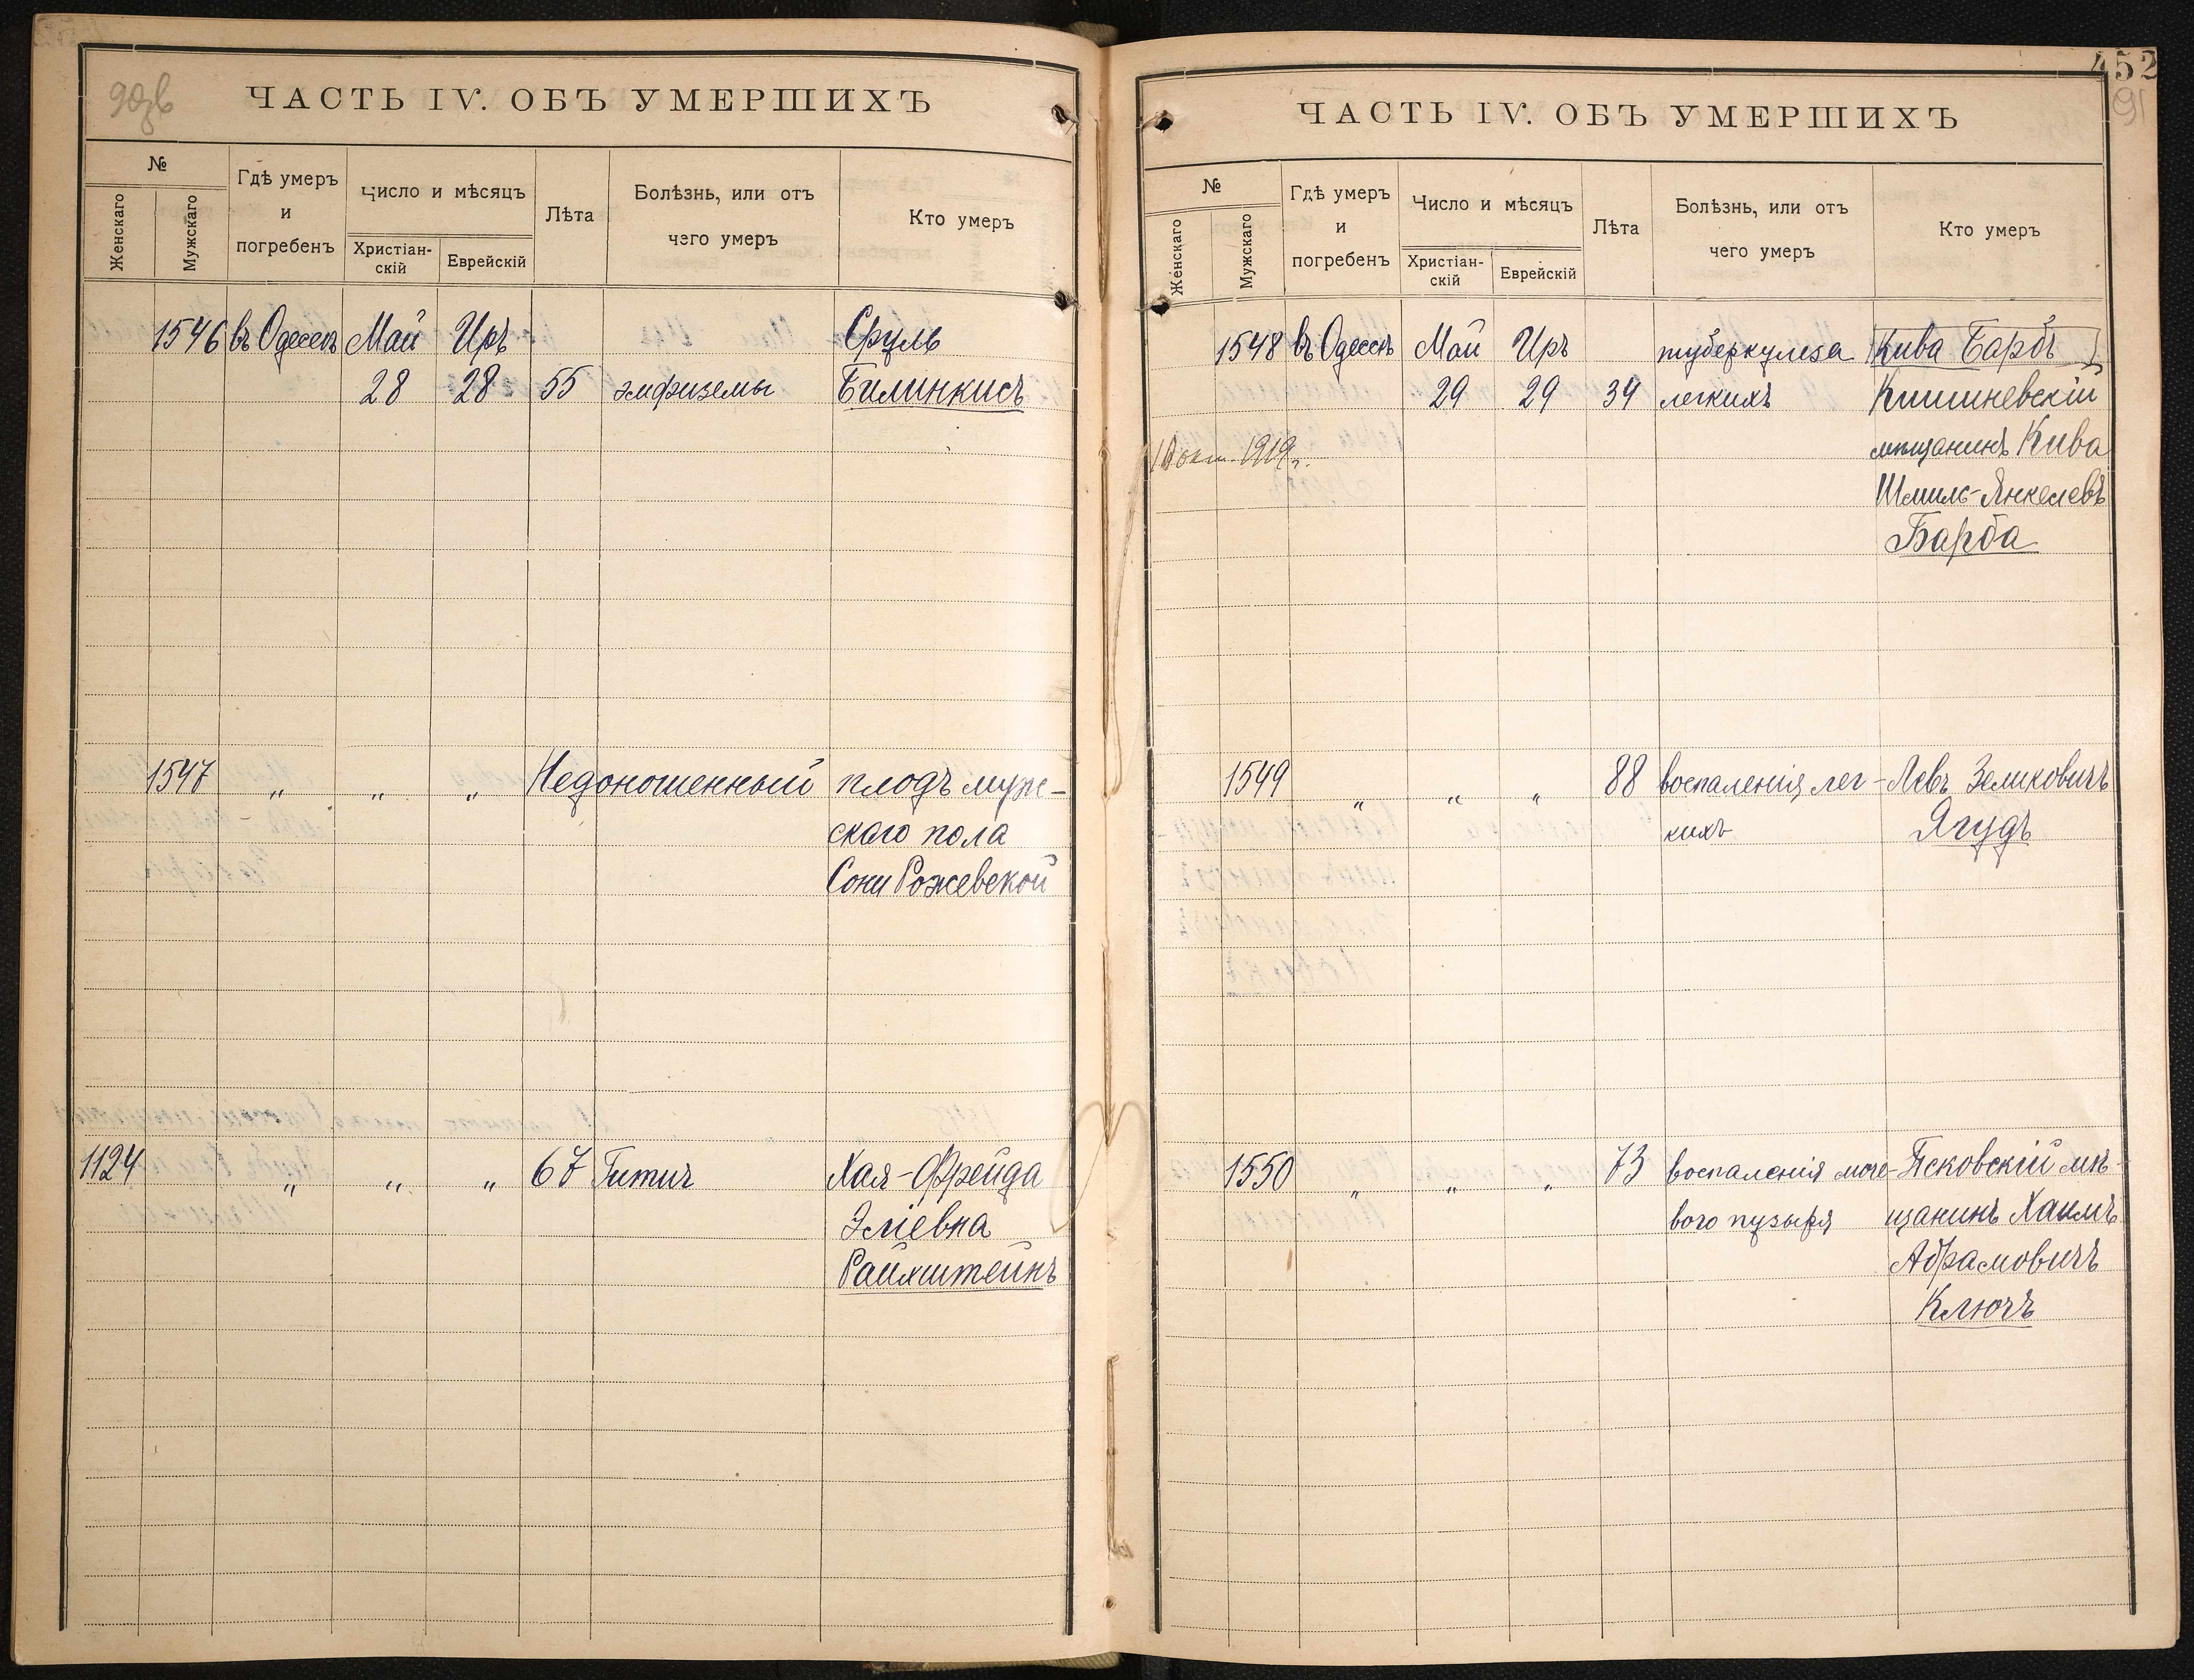 90зв
ЧАСТЬ IV. ОБЪ УМЕРШИХЪ
№
Женскаго
Мужскаго
Гдѣ умеръ
и
погребенъ
Число и мѣсяцъ
Христіан-
скій
Еврейскій
Лѣта
Болѣзнь, или отъ
чего умеръ
Кто умеръ
1546 въ Одессѣ Май Иръ Сруль
28 28 55 эмфиземы Билинкисъ
1547 „ „ „ Недоношенный плодъ муж-
скаго пола
Сони Рожевской
1124 „ „ „ 67 Гитич Хая-Фрейда
Эліевна
Райхштейнъ
452
91
ЧАСТЬ IV. ОБЪ УМЕРШИХЪ
№
Женскаго
Мужскаго
Гдѣ умеръ
и
погребенъ
Число и мѣсяцъ
Христіан-
скій
Еврейскій
Лѣта
Болѣзнь, или отъ
чего умеръ
Кто умеръ
1548 въ Одессѣ Май Иръ туберкулеза Кива Барбъ
29 29 34 легкихъ Кишиневскій
окт. 1919г. мѣщанинъ Кива
Шмиль-Янкелевъ
Барба
1549 „ „ „ 88 воспаленія лег- Левъ Зеликовичъ
кихъ Ягудъ
1550 „ „ „ 73 воспаленія моче- Псковскій мѣ-
вого пузыря щанинъ Хаимъ
Абрамовичъ
Ключъ